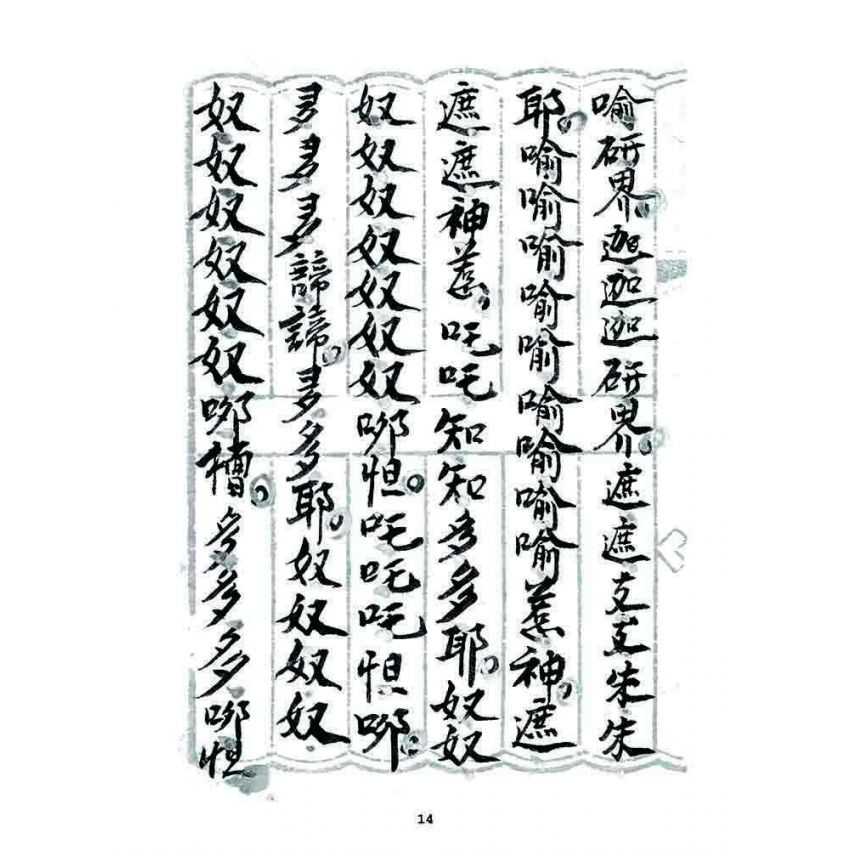 喻研界。迦迦迦研界。遮遮支支朱朱
耶。喻喻喻喻喻喻喻喻喻惹神。遮
遮遮神惹。吒吒知知多多耶。奴奴
奴奴奴奴奴奴奴哪怛。吒吒吒怛哪。
多多多諦諦。多多耶。奴奴奴奴
奴奴奴奴奴奴哪。多多多哪怛
14